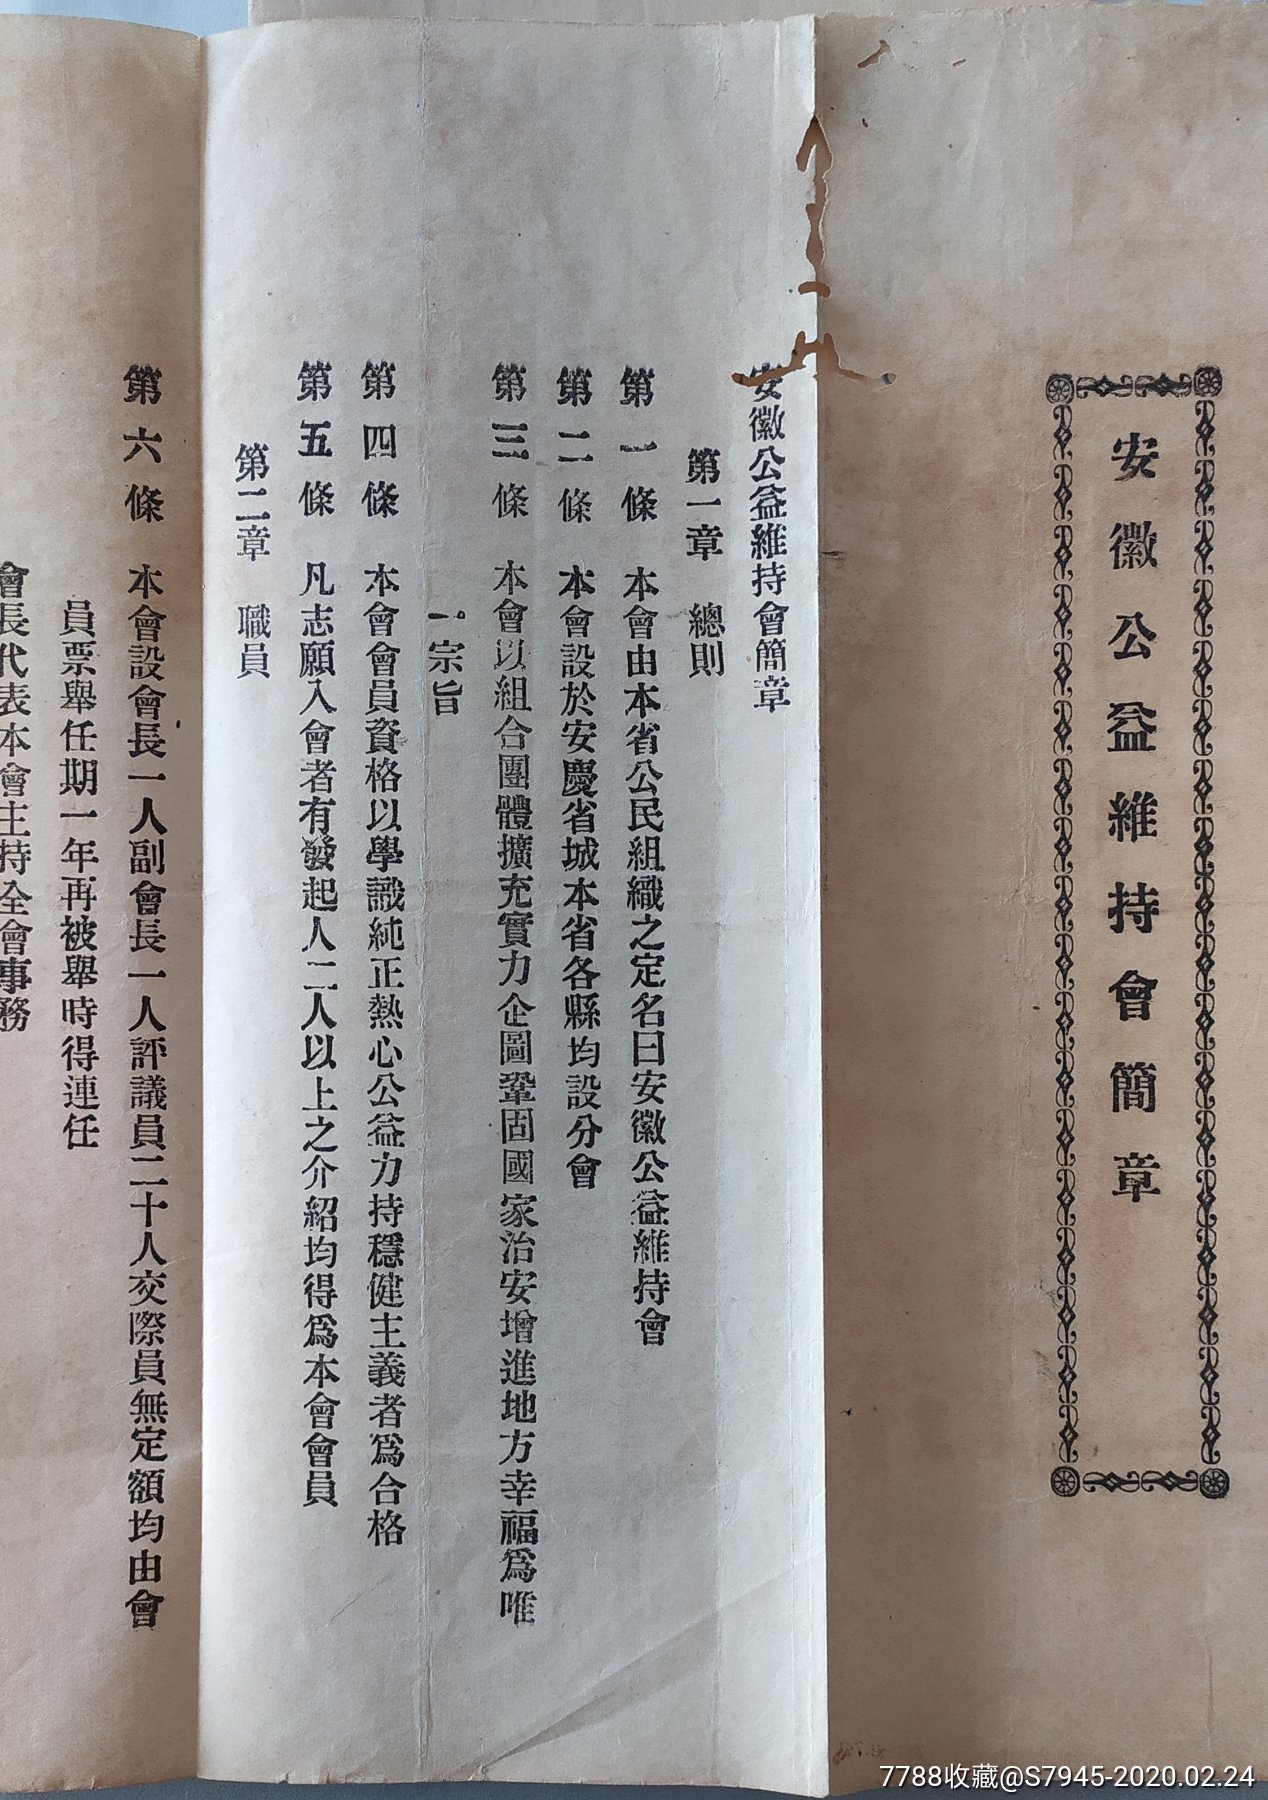 安徽公益維持會簡章
安徽公益維持會簡章
第一章　總則
第一條　本會由本省公民組織之定名曰安徽公益維持會
第二條　本會設於安慶省城本省各縣均設分會
第三條　本會以組合團體擴充實力企圖鞏固國家治安增進地方幸福爲唯
一宗旨
第四條　本會會員資格以學識純正熱心公益力持穩健主義者爲合格
第五條　凡志願入會者有發起人二人以上之介紹均得爲本會會員
第二章　職員
第六條　本會設會長一人副會長一人評議員二十人交際員無定額均由會
員票舉任期一年再被舉時得連任
會長代表本會主持全會事務
7788收藏@S7945-2020.02.24